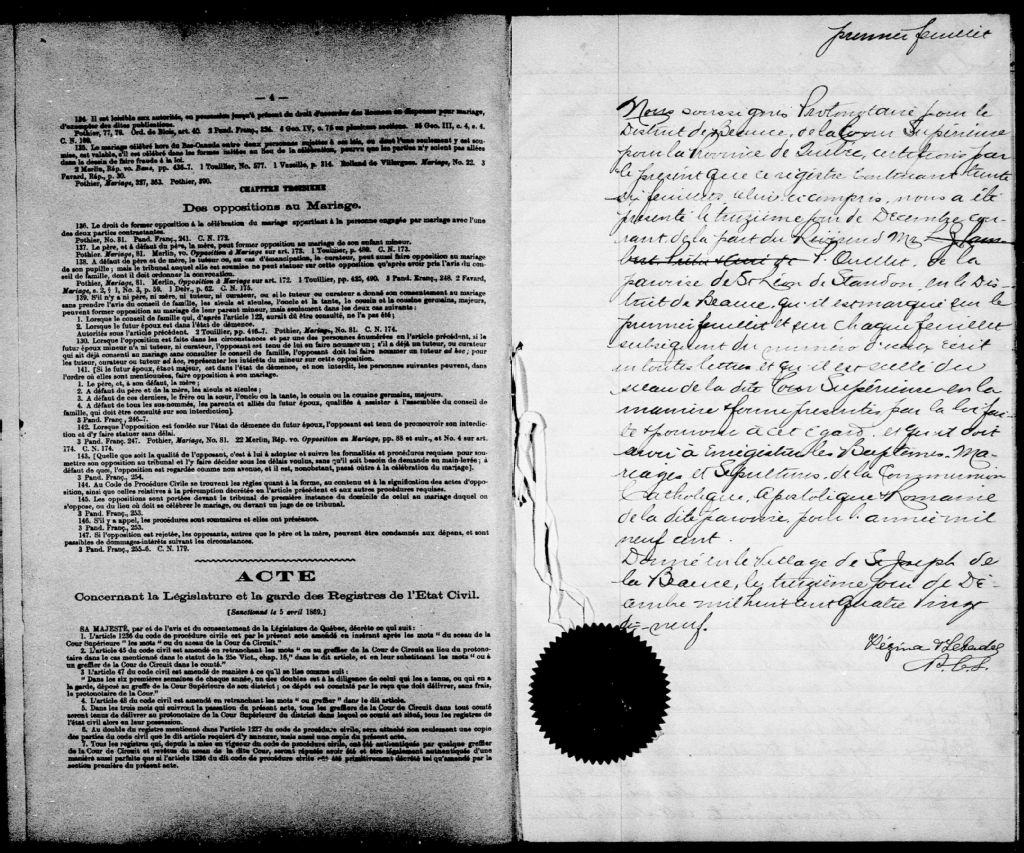 — 4 —
134. Il est loisible aux autorités, en possession jusqu'à présent du droit d'accorder des licences ou dispenses pour mariage,
d'exempter des dites publications.
Pothier, 77, 78. Ord. de Blois, art. 40. 2 Pand. Franç., 224. 4 Geo. IV, c. 75 en plusieurs sections. 35 Geo. III, c. 4, s. 4.
C. N. 169.
135. Le mariage célébré hors du Bas-Canada entre deux personnes sujettes à ses lois, ou dont l'une seulement y est sou-
mise, est valable, s'il est célébré dans les formes usitées au lieu de la célébration, pourvu que les parties n'y soient pas allées
dans le dessin de faire fraude à la loi.
2 Merlin, Rép. vo. Bans, pp. 436-7. 1 Touillier, No. 577. 1 Vazeille, p. 314. Rolland de Villargues. Mariage, No. 22. 3
Favard, Rép., p. 30.
Pothier, Mariage, 227, 363. Pothier, 390.
CHAPITRE TROISIÈME
Des oppositions au Mariage.
136. Le droit de former opposition à la célébration du mariage appartient à la personne engagée par mariage avec l'une
des deux parties contractantes.
Pothier, No. 81. Pand. Franç., 241. C. N. 172.
137. Le père, et à défaut du père, la mère, peut former opposition au mariage de son enfant mineur.
Pothier, Mariage, 81. Merlin, vo. Opposition au Mariage sur art. 173. 1 Touillier, p. 489. C. N. 173.
138. A défaut de père et de mère, le tuteur, ou, en cas d'émancipation, le curateur, peut aussi faire opposition au mariage
de son pupille; mais le tribunal auquel elle est soumise ne peut statuer sur cette opposition qu'après avoir pris l'avis du con-
seil de famille, dont il doit ordonner la convocation.
Pothier, Mariage, 81. Merlin, Opposition à Mariage sur art. 172. 1 Touillier, pp. 425, 490. 3 Pand. Franç., 248. 2 Favard,
Mariage, s. 2, § 1, No. 3, p. 59. 1 Delv., p. 62. C. N. 175.
139. S'il n'y a ni père, ni mère, ni tuteur, ni curateur, ou si le tuteur ou curateur a donné son consentement au mariage
sans prendre l'avis du conseil de famille, les aïeuls et aïeules, l'oncle et la tante, le cousin et la cousine germains, majeurs,
peuvent former opposition au mariage de leur parent mineur, mais seulement dans les deux cas suivants:
1. Lorsque le conseil de famille qui, d'après l'article 122, aurait dû être consulté, ne l'a pas été;
2. Lorsque le futur époux est dans l'état de démence.
Autorités sous l'article précédent. 2 Touillier, pp. 446-7. Pothier, Mariage, No. 81. C. N. 174.
130. Lorsque l'opposition est faite dans les circonstances et par une des personnes énumérées en l'article précédent, si le
futur époux mineur n'a ni tuteur, ni curateur, l'opposant est tenu de lui en faire nommer un; s'il a déjà un tuteur, ou curateur
qui ait déjà consenti au mariage sans consulter le conseil de famille, l'opposant doit lui faire nommer un tuteur ad hoc; pour
les tuteur, curateur ou tuteur ad hoc, représenter les intérêts du mineur sur cette opposition.
141. [Si le futur époux, étant majeur, est dans l'état de démence, et non interdit, les personnes suivantes peuvent, dans
l'ordre où elles sont mentionnées, faire opposition à son mariage.
1. Le père, et, à son défaut, la mère;
2. A défaut du père et de la mère, les aïeuls et aïeules;
3. A défaut de ces derniers, le frère ou la sœur, l'oncle ou la tante, le cousin ou la cousine germains, majeurs.
4. A défaut de tous les sus-nommés, les parents et alliés du futur époux, qualifiés à assister à l'assemblée du conseil de
famille, qui doit être consulté sur son interdiction].
3 Pand. Franç., 246-7.
142. Lorsque l'opposition est fondée sur l'état de démence du futur époux, l'opposant est tenu de promouvoir son interdic-
tion et d'y faire statuer sans délai.
3 Pand. Franç. 247. Pothier, Mariage, No. 81. 22 Merlin, Rép. vo. Opposition au Mariage, pp. 88 et suiv., et No. 4 sur art.
174. C. N. 174.
143. [Quelque que soit la qualité de l'opposant, c'est à lui à adopter et suivre les formalités et procédures requises pour sou-
mettre son opposition au tribunal et l'y faire décider sous les délais voulus, sans qu'il soit besoin de demande en main-levée; à
défaut de quoi, l'opposition est regardée comme non avenue, et il est, nonobstant, passé outre à la célébration du mariage].
3 Pand. Franç., 254.
144. Au Code de Procédure Civile se trouvent les règles quant à la forme, au contenu et à la signification des actes d'oppo-
sition, ainsi que celles relatives à la péremption décrétée en l'article précédent et aux autres procédures requises.
145. Les oppositions sont portées devant le tribunal de première instance du domicile de celui au mariage duquel on
s'oppose, ou du lieu où doit se célébrer le mariage, ou devant un juge de ce tribunal.
3 Pand. Franç., 253.
146. S'il y a appel, les procédures sont sommaires et elles ont préséance.
3 Pand. Franç., 253.
147. Si l'opposition est rejetée, les opposants, autres que le père et la mère, peuvent être condamnés aux dépens, et sont
passibles de dommages-intérêts suivant les circonstances.
3 Pand. Franç., 255-6. C. N. 179.
ACTE
Concernant la Législature et la garde des Registres de l'Etat Civil.
[Sanctionné le 5 avril 1869.]
SA MAJESTÉ, par et de l'avis et du consentement de la Législature de Québec, décrète ce qui suit:
1. L'article 1236 du code de procédure civile est par le présent acte amendé en insérant après les mots "du sceau de la
Cour Supérieure" les mots "ou du sceau de la Cour de Circuit."
2. L'article 45 du code civil est amendé en retranchant les mots "ou au greffier de la Cour de Circuit au lieu du protono-
taire dans le cas mentionné dans le statut de la 25e Vict., chap. 16," dans le dit article, et en leur substituant les mots "ou à
un greffier de la Cour de Circuit dans le comté."
3 L'article 47 du code civil est amendé de manière à ce qu'il se lise comme suit:
"Dans les six premières semaines de chaque année, un des doubles est à la diligence de celui qui les a tenus, ou qui en a
la garde, déposé au greffe de la Cour Supérieure de son district; ce dépôt est constaté par le reçu que doit délivrer, sans frais,
le protonotaire de la Cour."
4. L'article 48 du code civil est amendé en retranchant les mots "ou greffier" dans le dit article.
5. Dans les trois mois qui suivront la passation du présent acte, tous les greffiers de la Cour de Circuit dans tout comté
seront tenus de délivrer au protonotaire de la Cour Supérieure du district dans lequel ce comté est situé, tous les registres de
l'état civil alors en leur possession.
6. Au double du registre mentionné dans l'article 1227 du code de procédure civile, sera attaché non seulement une copie
des parties du code civil que le dit article requiert d'y annexer, mais aussi une copie du présent acte.
7. Tous les registres qui, depuis la mise en vigueur du code de procédure civile, ont été authentiqués par quelque greffier
de la Cour de Circuit et revêtus du sceau de la dite Cour, seront réputés avoir été et être légalement authentiqués d'une
manière aussi parfaite que si l'article 1236 du dit code de procédure civile eut été primitivement décrété tel qu'amendé par la
section première du présent acte.
premier feuillet
Nous soussignés Protonotaire pour le
District de Beauce, de la Cour Supérieure
pour la Province de Québec, certifions par
le présent que ce registre contenant trente
six feuillets celui ci compris, nous a été
présenté le treizième jour de Décembre cou-
rant de la part du Révérend Mr
P. Ouellet, de la
paroisse de St Léon de Standon, en le Dis-
trict de Beauce, qu'il est marqué sur le
premier feuillet et sur chaque feuillet
subséquent du numéro d'iceux écrit
en toutes lettres et qu'il est scellé du
sceau de la dite Cour Supérieure en la
manière & forme présentés par la loi fai-
te & pourvue à cet égard, et qu'il doit
servir à enregistrer les Baptêmes, Ma-
riages et Sépultures de la Communion
Catholique, Apostolique & Romaine
de la dite paroisse, pour l'année mil
neuf cent.
Donné en le Village de St Joseph de
la Beauce, le treizième jour de Dé-
cembre mil huit cent quatre vingt
dix-neuf.
Vézina
P.C.S.